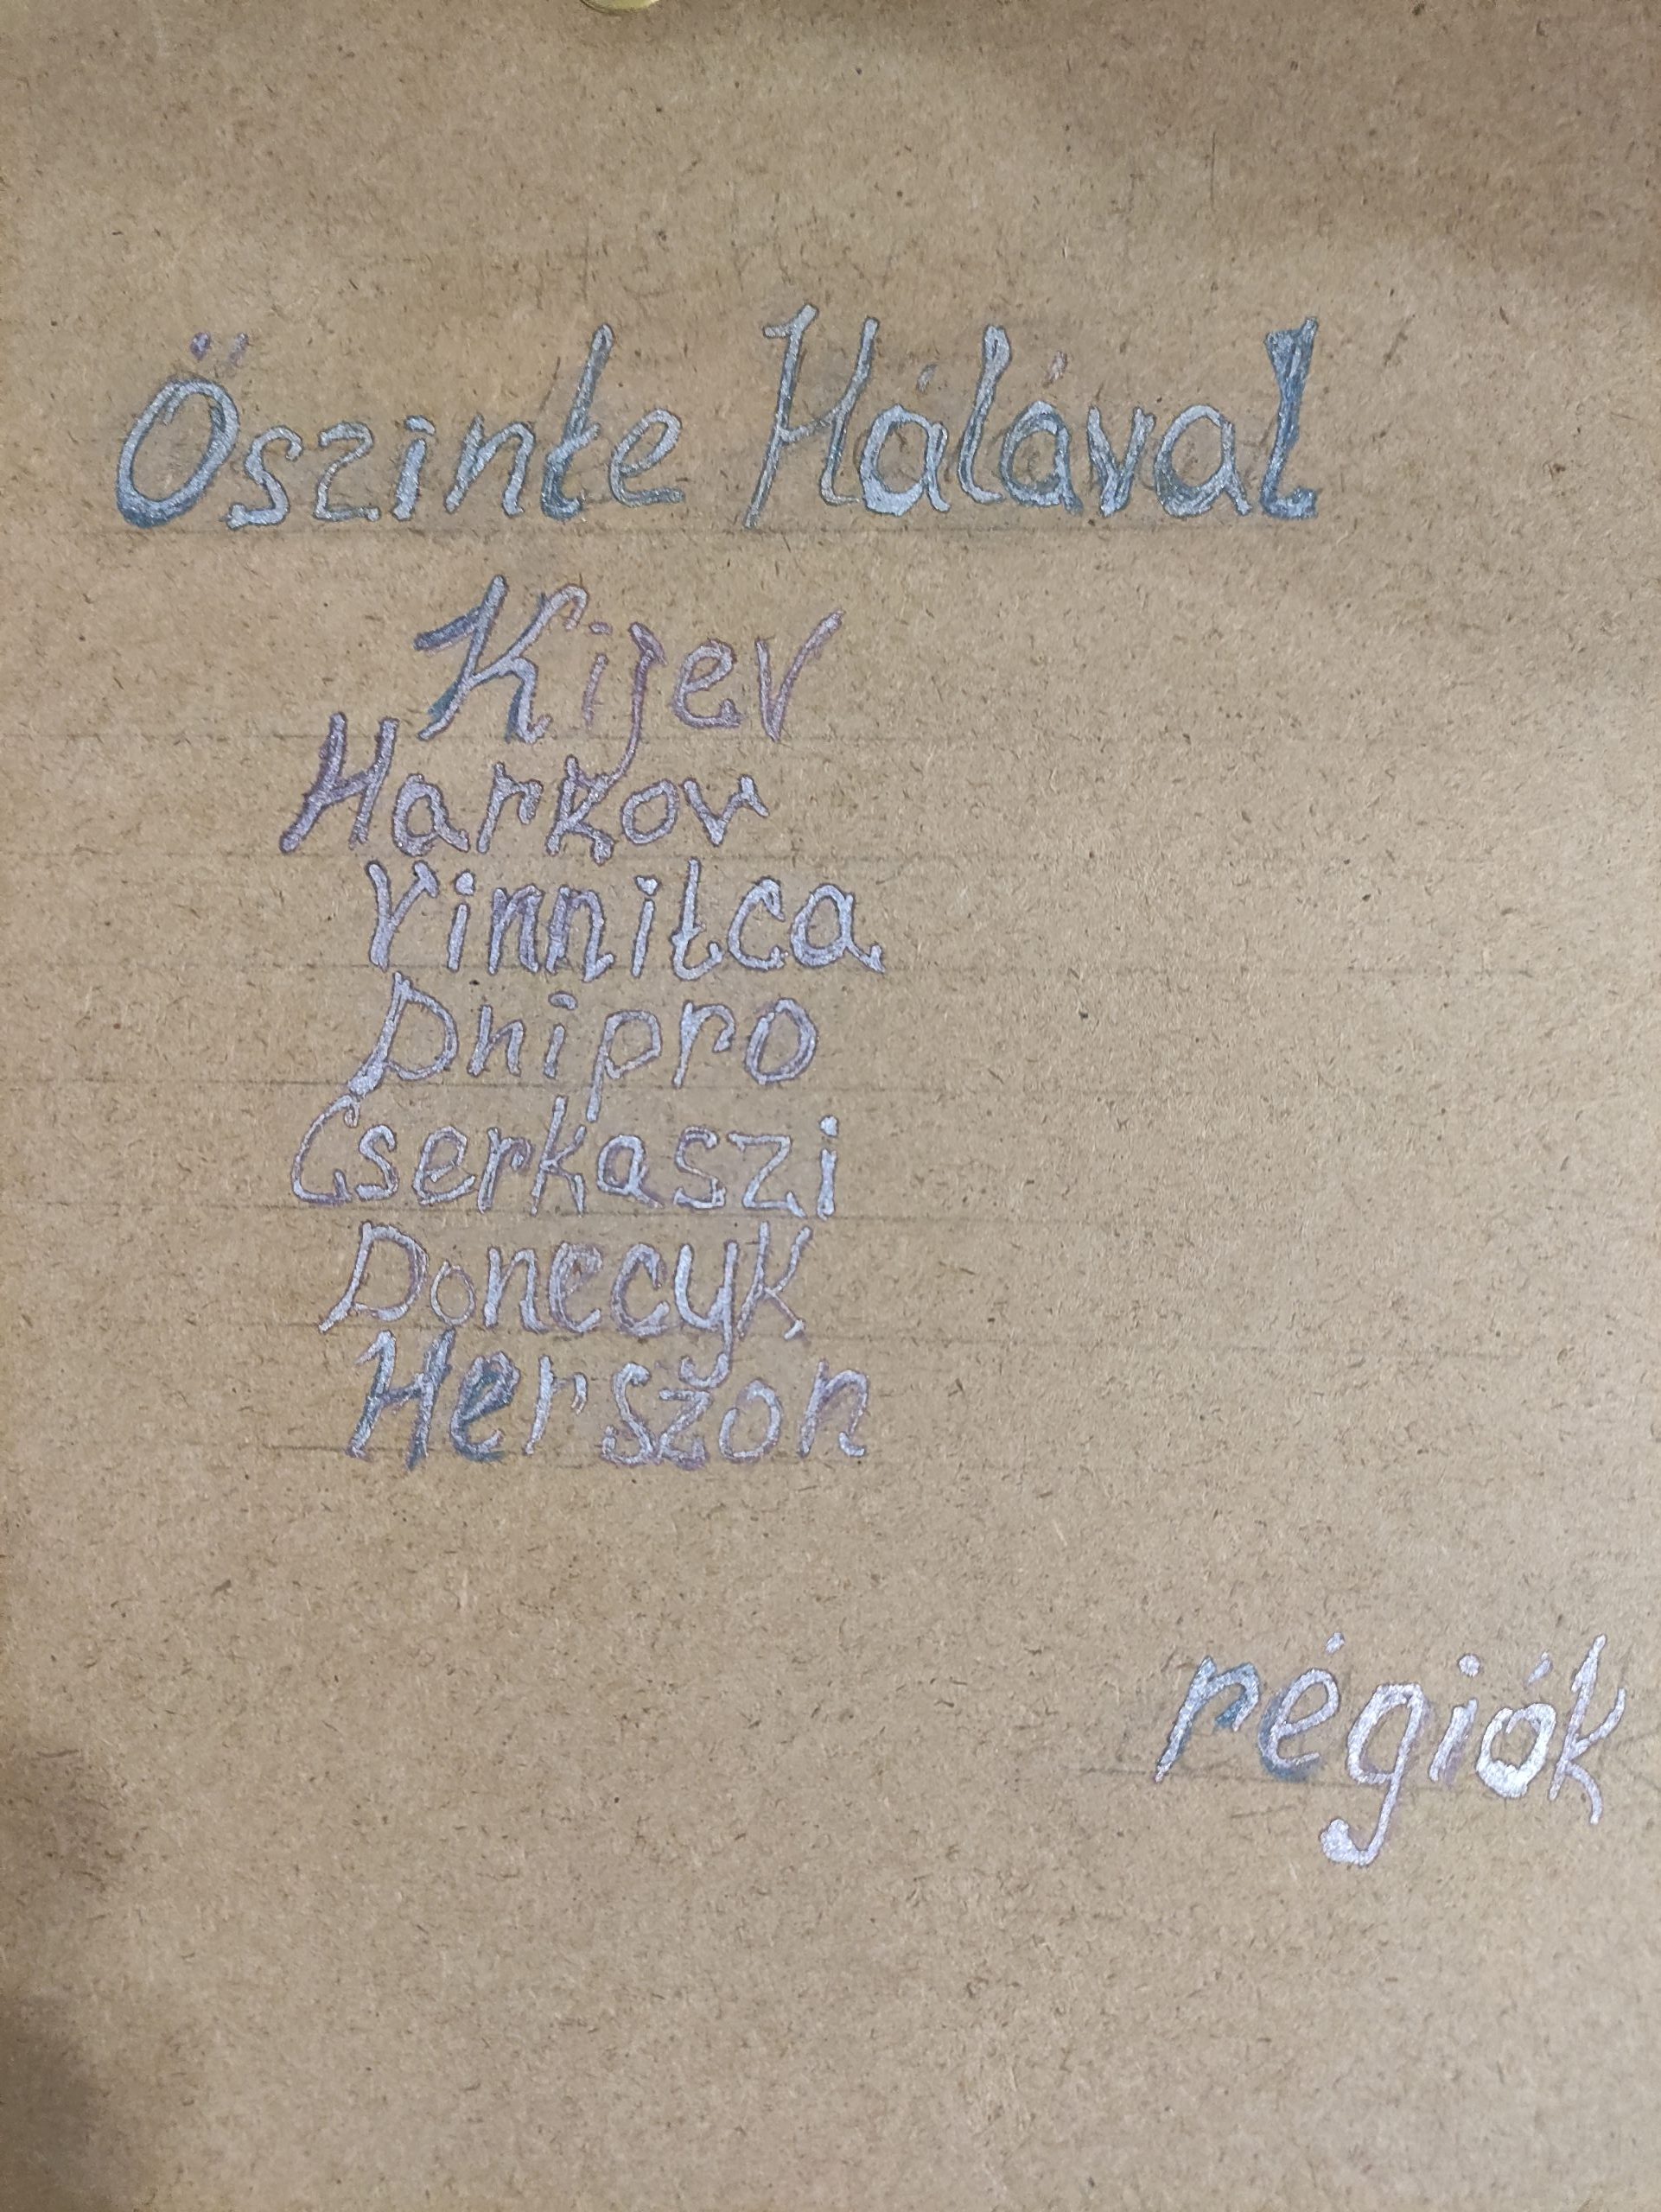 Őszinte Hálával
Kijev
Harkov
Vinnitca
Dnipro
Cserkaszi
Donecyk
Herszon
régiók